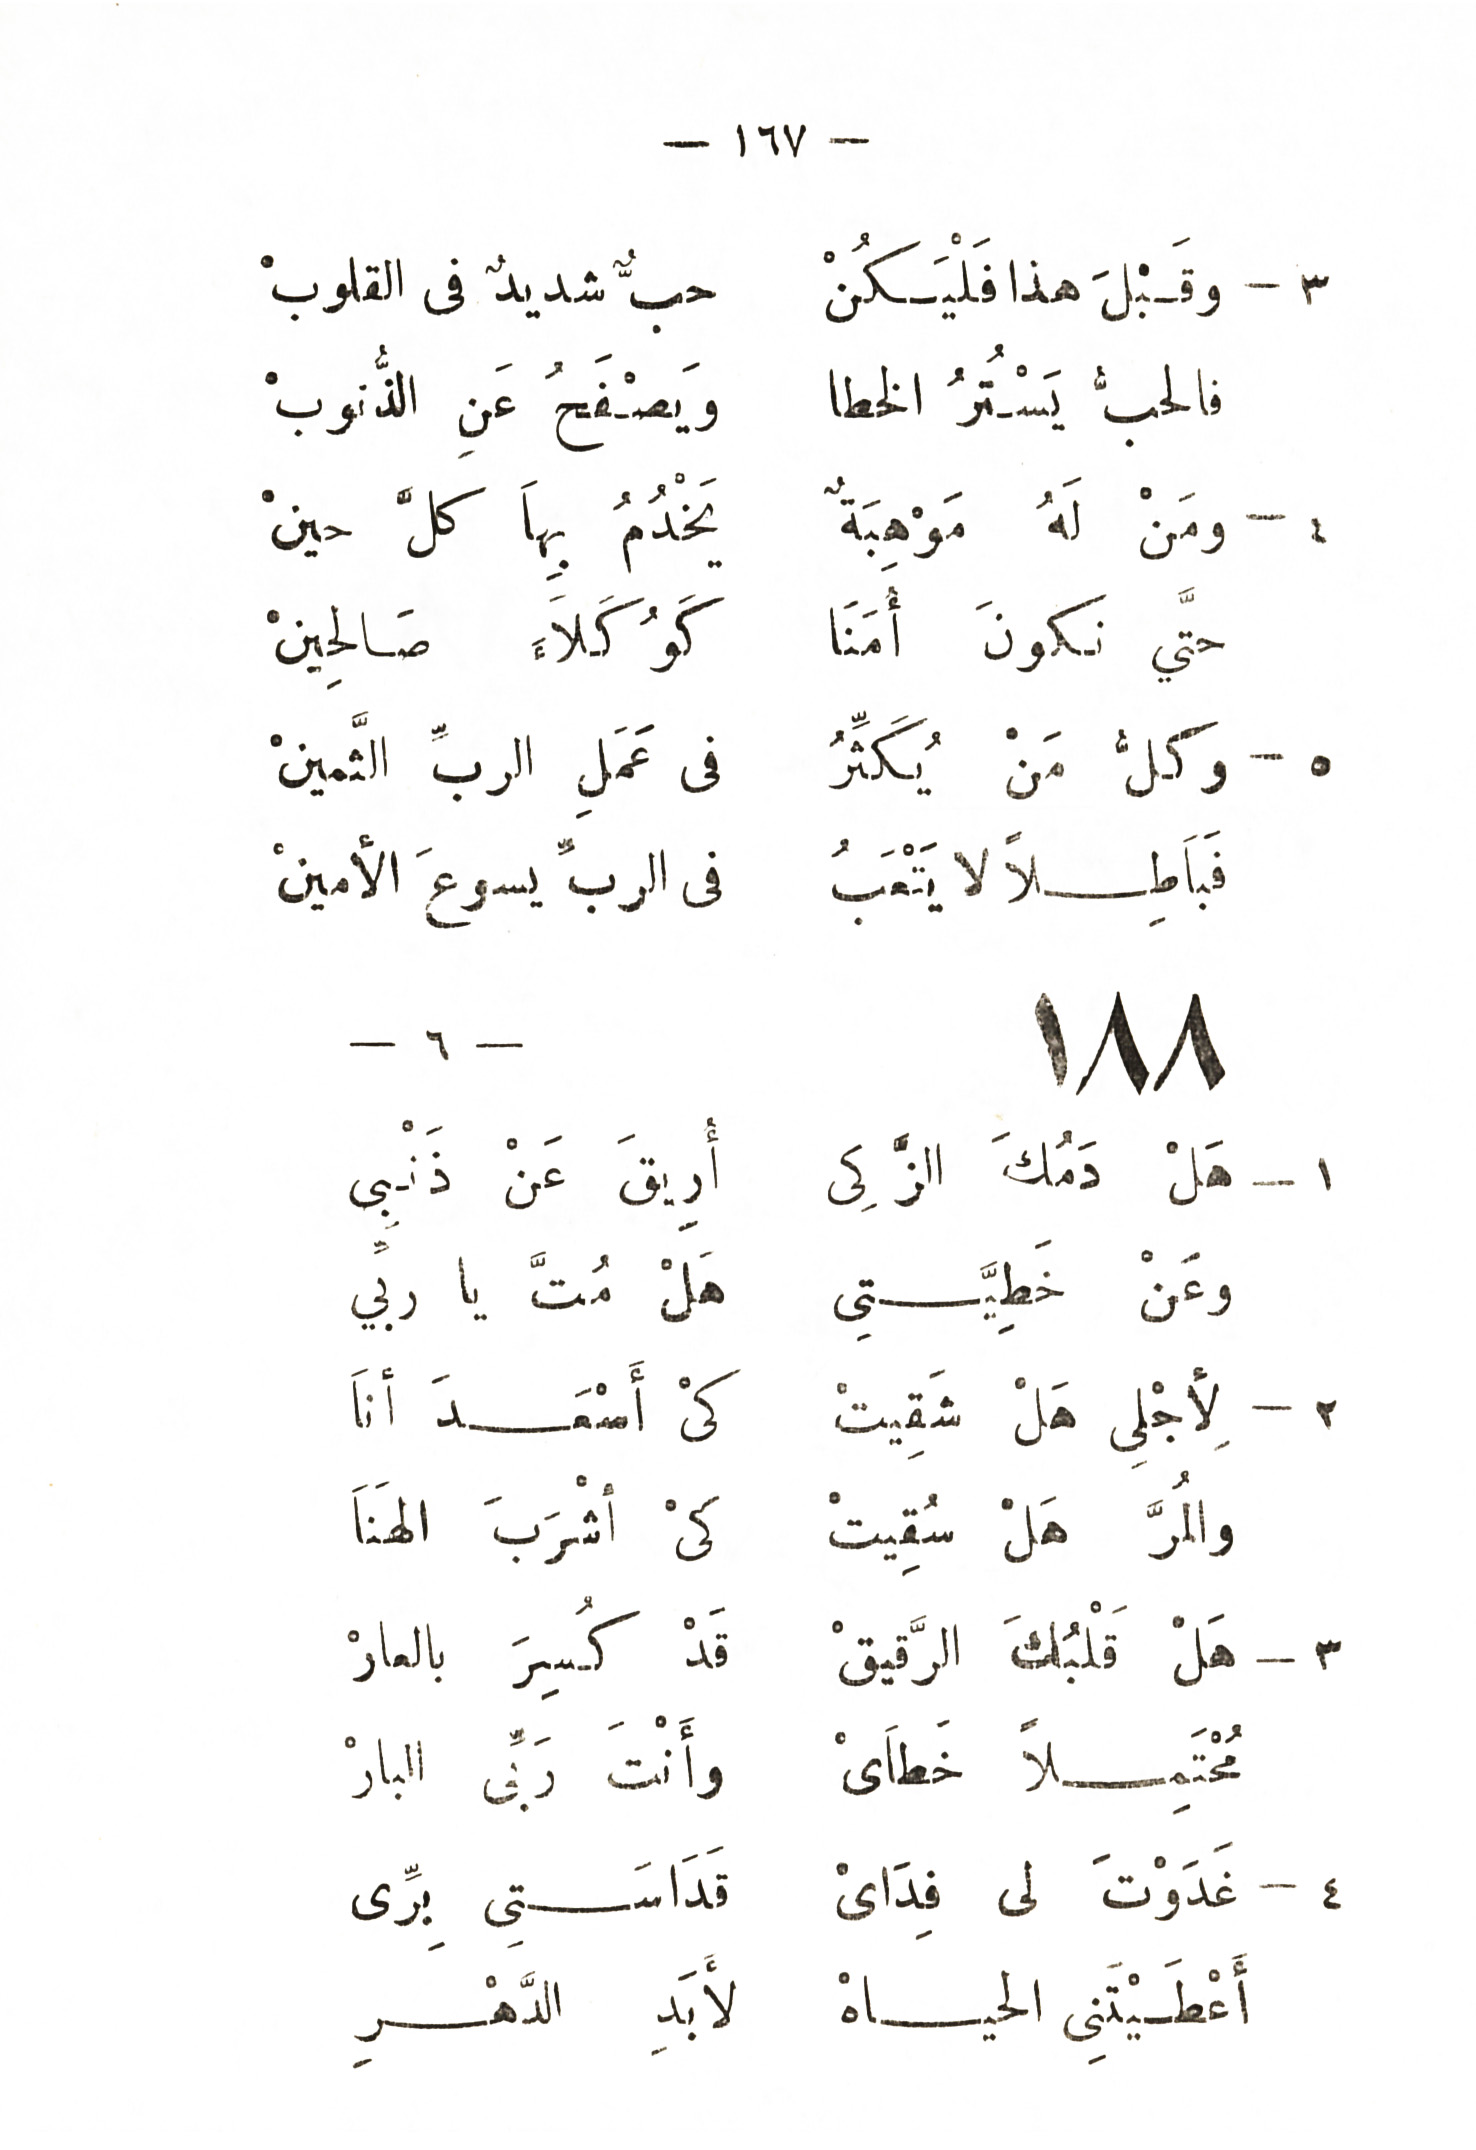 — ١٦٧ —
٣ — وقَبْلَ هذا فَلْيَكُنْ حبٌّ شديدٌ فى القلوبْ
فالحبُّ يَسْتُرُ الخطا ويَصْفَحُ عَنِ الذُّنوبْ
٤ — ومَنْ لَهُ مَوْهِبَةٌ يَخْدُمُ بِهاَ كلَّ حينْ
حتَّي نكونَ أُمَنَا كَوُكَلاَءَ صَالحِينْ
٥ — وكلُّ مَنْ يُكَثِّرُ فى عَمَلِ الربِّ الثَّمينْ
فَباَطِلاً لا يَتْعَبُ فى الربِّ يسوعَ الأمينْ
١٨٨ — ٦ —
١ — هَلْ دَمُكَ الزَّكِى أُرِيقَ عَنْ ذَنْبِي
وعَنْ خَطِيَّتِي هَلْ مُتَّ يا ربِّي
٢ — لِأجْلِي هَلْ شَقِيتْ كىْ أَسْعَدَ أناَ
والمُرَّ هَلْ سُقِيتْ كىْ أشْرَبَ الهنَاَ
٣ — هَلْ قَلْبُكَ الرَّقيقْ قَدْ كُسِرَ بالعارْ
مُحْتَمِلاً خَطاَىْ وأَنْتَ رَبِّى البارْ
٤ — غَدَوْتَ لى فِدَاىْ قَدَاسَتِي بِرِّى
أَعْطَيْتَنِى الحياهْ لأَبَدِ الدَّهْرِ